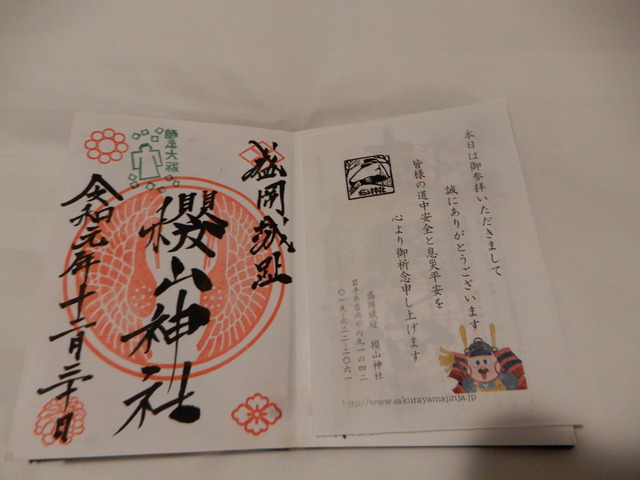 本日は御参拝いただきまして
誠にありがとうございます
皆様の道中安全と息災平安を
心より御祈念申し上げます
盛岡城址 櫻山神社
岩手県盛岡市内丸一の四二
〇一九-六二二-二〇六一
http://www.sakurayamajinja.jp
櫻山神社
盛岡城址
師走大祓
櫻山神社
令和元年十二月三十日